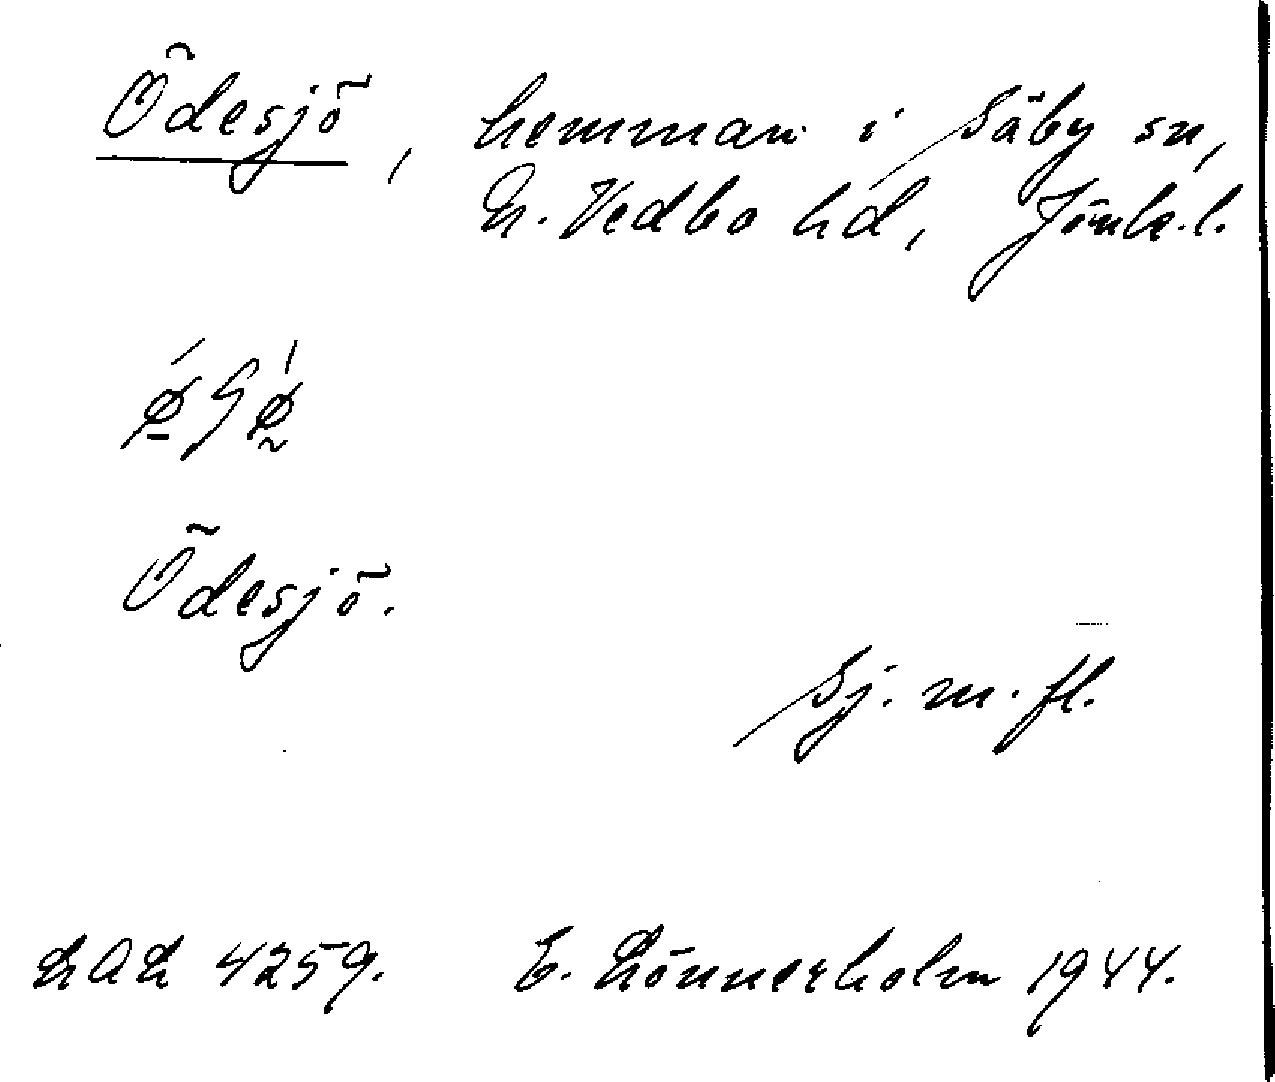 Ödesjö, hemman i Säby sn,
N. Vedbo hd, Jönk.l.
Ödesjö.
Sj. m. fl.
LAL 4259. E. Lönnerholm 1944.